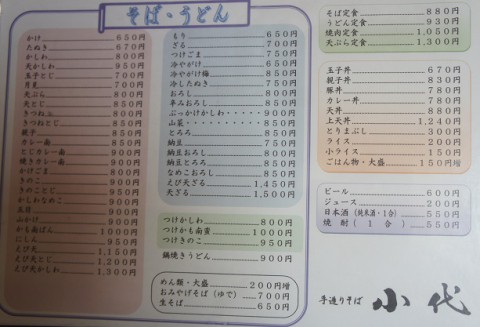 そば・うどん
かけ 650円
たぬき 670円
かしわ 800円
天かしわ 950円
玉子とじ 700円
月見 700円
天ぷら 800円
天とじ 850円
きつね 800円
きつねとじ 850円
親子 850円
カレー南 850円
とじカレー南 900円
焼きカレー南 900円
かけごま 750円
きのこ 900円
きのことじ 950円
かしわなめこ 900円
五目 900円
山かけ 900円
かも南ばん 1,000円
にしん 950円
えび天 1,150円
えび天とじ 1,200円
えび天かしわ 1,300円
もり 650円
ざる 700円
つけごま 750円
冷やがけ 650円
冷やがけ梅 850円
冷したぬき 750円
おろし 800円
辛みおろし 850円
ぶっかけかしわ 900円
山菜 850円
とろろ 850円
納豆 750円
納豆おろし 850円
納豆とろろ 850円
なめこおろし 850円
えび天ざる 1,450円
天ざる 1,500円
つけかしわ 800円
つけかも南蛮 1,000円
つけきのこ 950円
鍋焼きうどん 900円
めん類・大盛 200円増
おみやげそば(ゆで) 700円
生そば 650円
そば定食 880円
うどん定食 930円
焼肉定食 1,050円
天ぷら定食 1,300円
玉子丼 670円
親子丼 830円
豚丼 780円
カレー丼 780円
天丼 880円
上天丼 1,240円
とりまぶし 300円
ライス 200円
小ライス 150円
ごはん物・大盛 150円増
ビール 600円
ジュース 200円
日本酒(純米酒・1合) 550円
焼酎(1合) 550円
手造りそば 小代